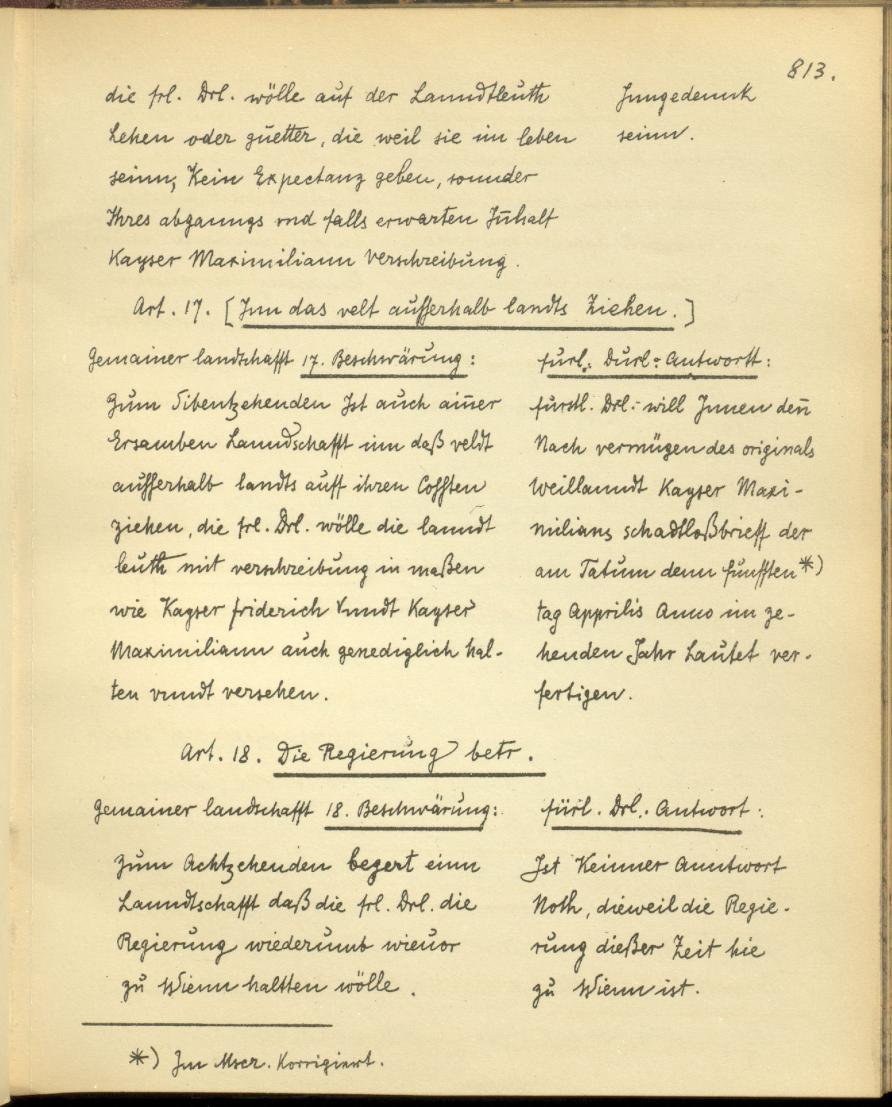 813.
die frl. Drl. wölle auf der Lanndtleuth
Lehen oder guetter, die weil sie im leben
seinn, Kein Expectanz geben, sonnder
Ihres abganngs vnd falls erwarten Inhalt
Kayser Maximiliann Verschreibung.
Inngedennk
seinn.
Art. 17. [Inn das velt ausserhalb landts Ziehen.]
Gemainer landschafft 17. Beschwärung:
Zum Sibentzehenden Ist auch ainer
Ersamben Lanndschafft inn daß veldt
ausserhalb landts auff ihren Cossten
ziehen, die frl. Drl. wölle die lanndt
leuth mit verschreibung in maßen
wie Kayser friderich Vnndt Kayser
Maximiliann auch genediglich hal-
ten vnndt versehen.
fürl. Durl: Antwortt:
fürstl. Drl: will Innen den
Nach vermügen des originals
Weillanndt Kayser Maxi-
milians schadtloßbrieff der
am Tatum denn funfften *)
tag Apprilis Anno im ze-
henden Jahr Lautet ver-
fertigen.
Art. 18. Die Regierung betr.
Gemainer landschafft 18. Beschwärung:
Zum Achtzehenden begert einn
Lanndtschafft daß die frl. Drl. die
Regierung wiederumb wieuor
zu Wienn haltten wölle.
fürl. Drl. Antwort:
Ist Keinner Anntwort
Noth, dieweil die Regie-
rung dießer Zeit hie
zu Wienn ist.
*) Im Mscr. Korrigiert.